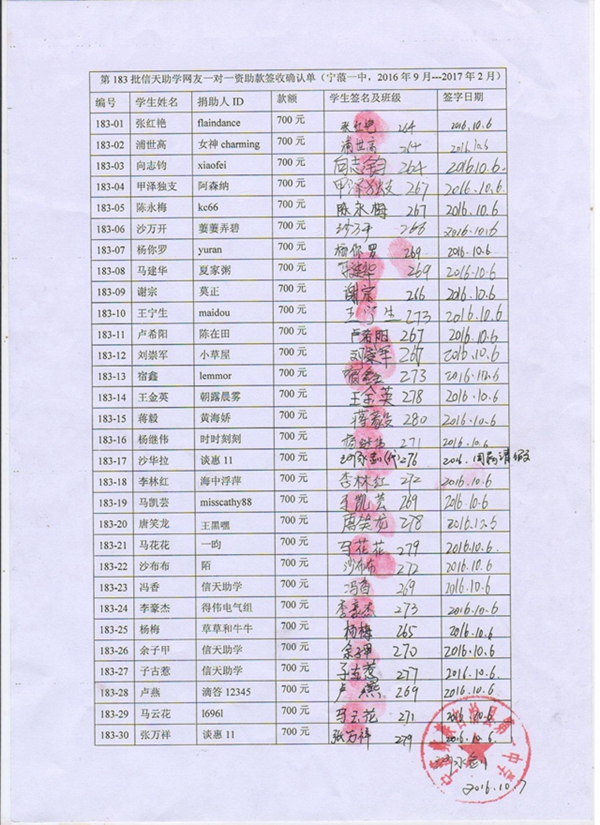 第 183 批信天助学网友一对一资助款签收确认单（宁蒗一中，2016 年 9 月---2017 年 2 月）
编号 学生姓名 捐助人 ID 款额 学生签名及班级 签字日期
183-01 张红艳 flaindance 700 元 张红艳 264 2016.10.6
183-02 浦世高 女神 charming 700 元 浦世高 264 2016.10.6
183-03 向志钧 xiaofei 700 元 向志钧 264 2016.10.6.
183-04 甲泽独支 阿森纳 700 元 甲泽独支 267 2016.10.6
183-05 陈永梅 kc66 700 元 陈永梅 267 2016.10.6
183-06 沙万开 蒌蒌弄碧 700 元 沙万开 266 2016.10.6
183-07 杨你罗 yuran 700 元 杨你罗 269 2016.10.6
183-08 马建华 夏家粥 700 元 马建华 269 2016.10.6
183-09 谢宗 莫正 700 元 谢宗 266 2016.10.6
183-10 王宁生 maidou 700 元 王宁生 273 2016.10.6
183-11 卢希阳 陈在田 700 元 卢希阳 267 2016.10.6
183-12 刘崇军 小草屋 700 元 刘崇军 267 2016.10.6
183-13 宿鑫 lemmor 700 元 宿鑫 273 2016.10.6
183-14 王金英 朝露晨雾 700 元 王金英 278 2016.10.6
183-15 蒋毅 黄海娇 700 元 蒋毅 280 2016.10.6
183-16 杨继伟 时时刻刻 700 元 杨继伟 271 2016.10.6
183-17 沙华拉 谈惠 11 700 元 276 2016. 请假
183-18 李林红 海中浮萍 700 元 李林红 272 2016.10.6
183-19 马凯芸 misscathy88 700 元 马凯芸 269 2016.10.6
183-20 唐笑龙 王黑嘿 700 元 唐笑龙 278 2016.
183-21 马花花 一昀 700 元 马花花 279 2016.10.6
183-22 沙布布 陌 700 元 沙布布 272 2016.10.6
183-23 冯香 信天助学 700 元 冯香 269 2016.10.6
183-24 李豪杰 得伟电气组 700 元 李豪杰 273 2016.10.6
183-25 杨梅 草草和牛牛 700 元 杨梅 265 2016.10.6
183-26 余子甲 信天助学 700 元 余子甲 270 2016.10.6
183-27 子古惹 信天助学 700 元 子古惹 277 2016.10.6
183-28 卢燕 滴答 12345 700 元 卢燕 269 2016.10.6
183-29 马云花 l696l 700 元 马云花 271 2016.10.6
183-30 张万祥 谈惠 11 700 元 张万祥 279 2016.10.6
2016.10.7